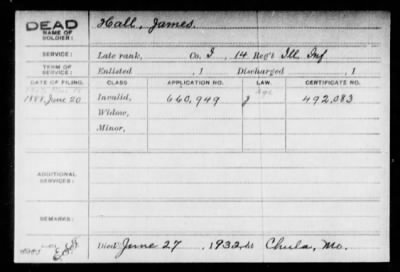 DEAD Hall, James.
NAME OF SOLDIER:
SERVICE: Late rank, Co. I, 14 Reg't Ill. Inf
TERM OF SERVICE: Enlisted , 1 Discharged , 1
DATE OF FILING. CLASS. APPLICATION NO. LAW. CERTIFICATE NO.
1888, June 20 Invalid, 660,949 J 492,083
Widow,
Minor,
ADDITIONAL SERVICES:
REMARKS:
Died June 27, 1932, at Chula, Mo.